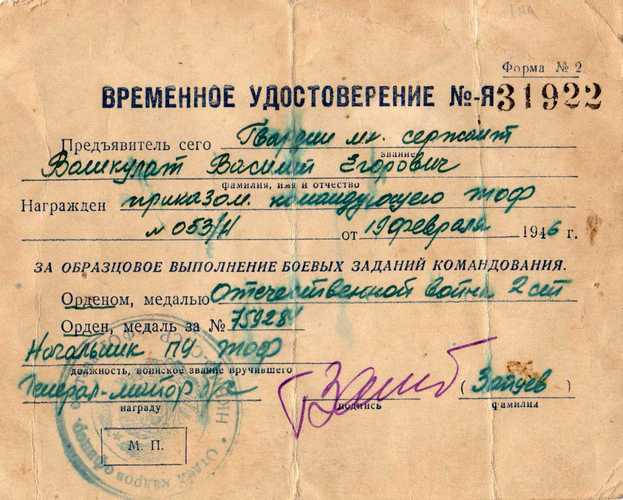 Форма № 2
ВРЕМЕННОЕ УДОСТОВЕРЕНИЕ №-Я 31922
Предъявитель сего Гвардии мл. сержант
звание
Василий Егорович
фамилия, имя и отчество
Награжден приказом командующего тоф
№ 053/н от 19 февраля 1946 г.
ЗА ОБРАЗЦОВОЕ ВЫПОЛНЕНИЕ БОЕВЫХ ЗАДАНИЙ КОМАНДОВАНИЯ.
Орденом, медалью Отечественной войны 2 ст
Орден, медаль за № 759284
Начальник ПУ тоф
должность, воинское звание вручившего
Генерал-майор б/с (Зайцев)
награду подпись фамилия
М. П.